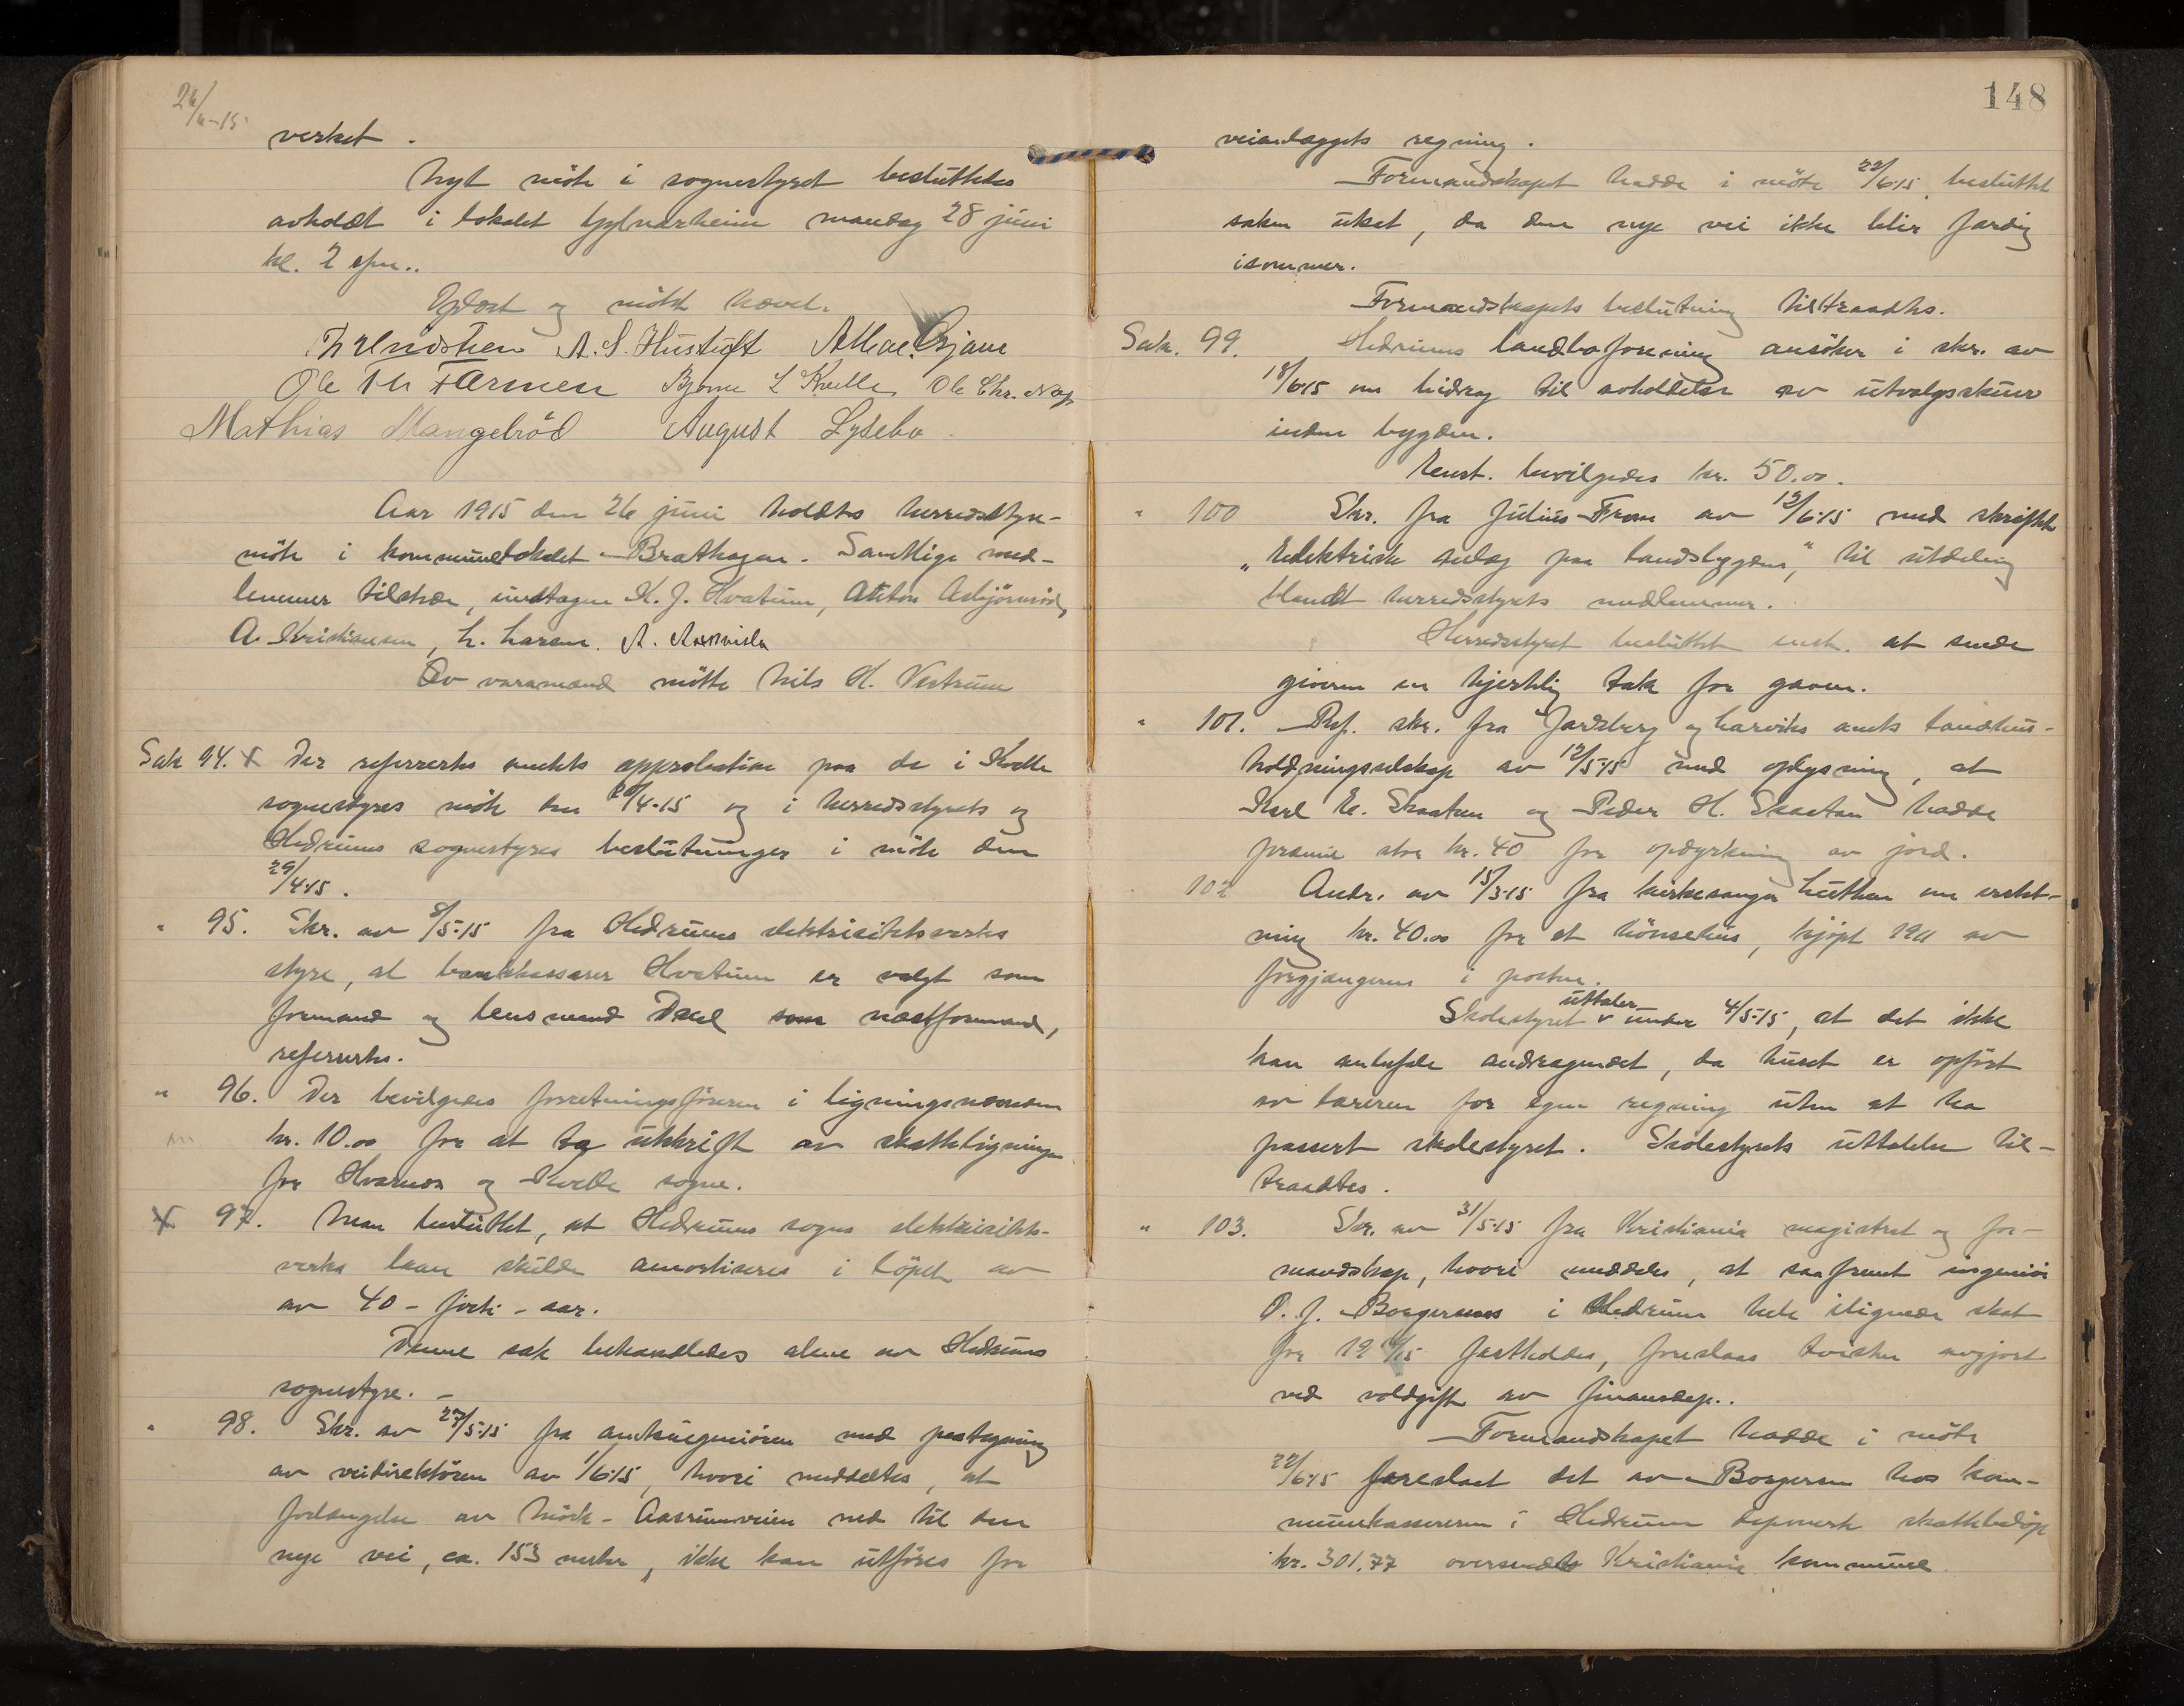 26/6-15
verket.
Nyt möte i sognestyret besluttedes
avholdt i lokalet Gyltnerheim mandag 28 juni
kl. 2 efm..
Oplæst og mötet hævet.
A. S. Hustoft
Ole Th Farmen Bjarne L Kvelle Ole Chr. Næss
Mathias Mangelröd August Lysebo
Aar 1915 den 26 juni holdtes herredsstyre-
möte i kommunelokalet Brathagen. Samtlige med-
lemmer tilstede, undtagen K. J. Hvatum, Anton Asbjörnröd,
A. Kristiansen, L. Larsen.
Av varamænd mötte Nils H. Vestrum
Sak 94. x Der refererteş amtets approbation paa de i Kvelle
sognestyres möte den 20/4-15 og i herredsstyrets og
Hedrums sognestyres beslutninger i möte den
29/4-15.
" 95. Skr. av 8/5-15 fra Hedrums elektricitetsverks
styre, at bankkasserer Hvatum er valgt som
formand og lensmand Dahl som næstformand,
refertes.
" 96. Der bevilgedes forretningsföreren i ligningsnævnden
kr. 10.00 for at ta utskrift av skatteligningen
for Hvarnes og Kvelle sogne.
x 97. Man besluttet, at Hedrums sogns elektricitets-
verks laan skulde amortiseres i löpet av
av 40 - förti - aar.
Denne sak behandledes alene av Hedrums
sognestyre. -
" 98. Skr. av 27/5-15 fra amtsingeniören med paategning
av veidirektören av 1/6-15, hvori meddeltes, at
forlængelse av Mörk-Aasrumveien ned til den
nye vei, ca. 153 meter, ikke kan utföres for
148
veianlæggets regning.
Formandskapet hadde i möte 22/6-15 besluttet
saken utsat, da den nye vei ikke blir færdig
isommer.
Formandskapets beslutning tiltraadtes.
Sak. 99. Hedrums landboforening ansöker i skr. av
18/6-15 om bidrag til avholdelse av utvalgsskuer
inden bygden.
Enst. bevilgedes kr. 50.00.
" 100 Skr. fra Julius Fram av 12/6-15 med skriftet
"Elektriske anlæg paa landsbygden", til utdeling
blandt herredsstyrets medlemmer.
Herredsstyret besluttet enst. at sende
giveren en hjertelig tak for gaven.
" 101. Ref. skr. fra Jarlsberg og Larviks amts landhus-
holdningsselskap av 12/5-15 med oplysning, at
Karl E. Skaatan og Peder H. Skaatan hadde
præmie stor kr. 40 for opdyrkning av jord.
102 Andr. av 15/3-15 fra kirkesanger Luthen om erstat-
ning kr. 40.00 for et hönsehus, kjöpt 1911 av
forgjængeren i posten.
Skolestyret uttaler under 4/5-15, at det ikke
kan anbefale andragendet, da huset er opfört
av læreren for egen regning uten at ha
passert skolestyret. Skolestyrets uttalelse til-
traadtes.
" 103. Skr. av 31/5-15 fra Kristiania magistrat og for-
mandskap, hvori meddeles, at saafremt ingeniör
O. J. Borgersens i Hedrum hele ilignede skat
for 1914/15 fastholdes, foreslaas tvisten avgjort
ved voldgift av finansdep..
Formandskapet hadde i möte
22/6-15 foreslaat det av Borgersen hos kom-
munekassereren i Hedrum deponerte skattebelöp
kr. 301.77 oversendt Kristiania kommune